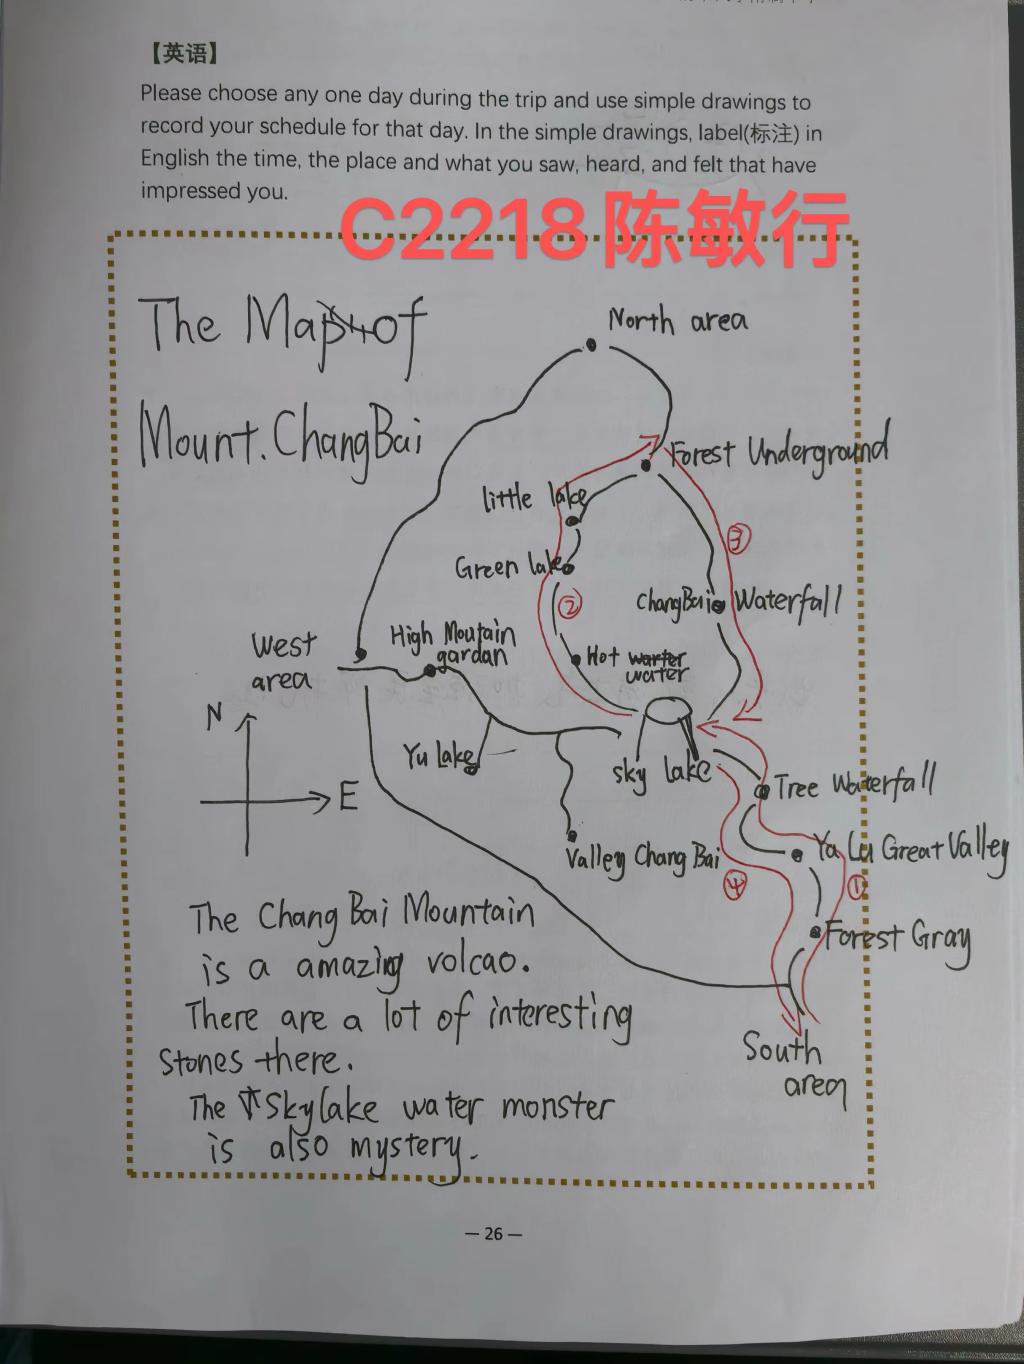 【英语】
Please choose any one day during the trip and use simple drawings to
record your schedule for that day. In the simple drawings, label(标注) in
English the time, the place and what you saw, heard, and felt that have
impressed you.
C2218 陈敏行
The Map of
Mount. ChangBai
North area
Forest Underground
little lake
③
Green lake
②
ChangBai Waterfall
West
area
High Moutain
gardan
Hot warter
water
N
Yu Lake
sky lake
E
Tree Waterfall
Valley Chang Bai
Ya Lu Great Valley
④
①
Forest Gray
The Chang Bai Mountain
is a amazing volcao.
There are a lot of interesting
Stones there.
The Skylake water monster
is also mystery.
South
area
— 26 —